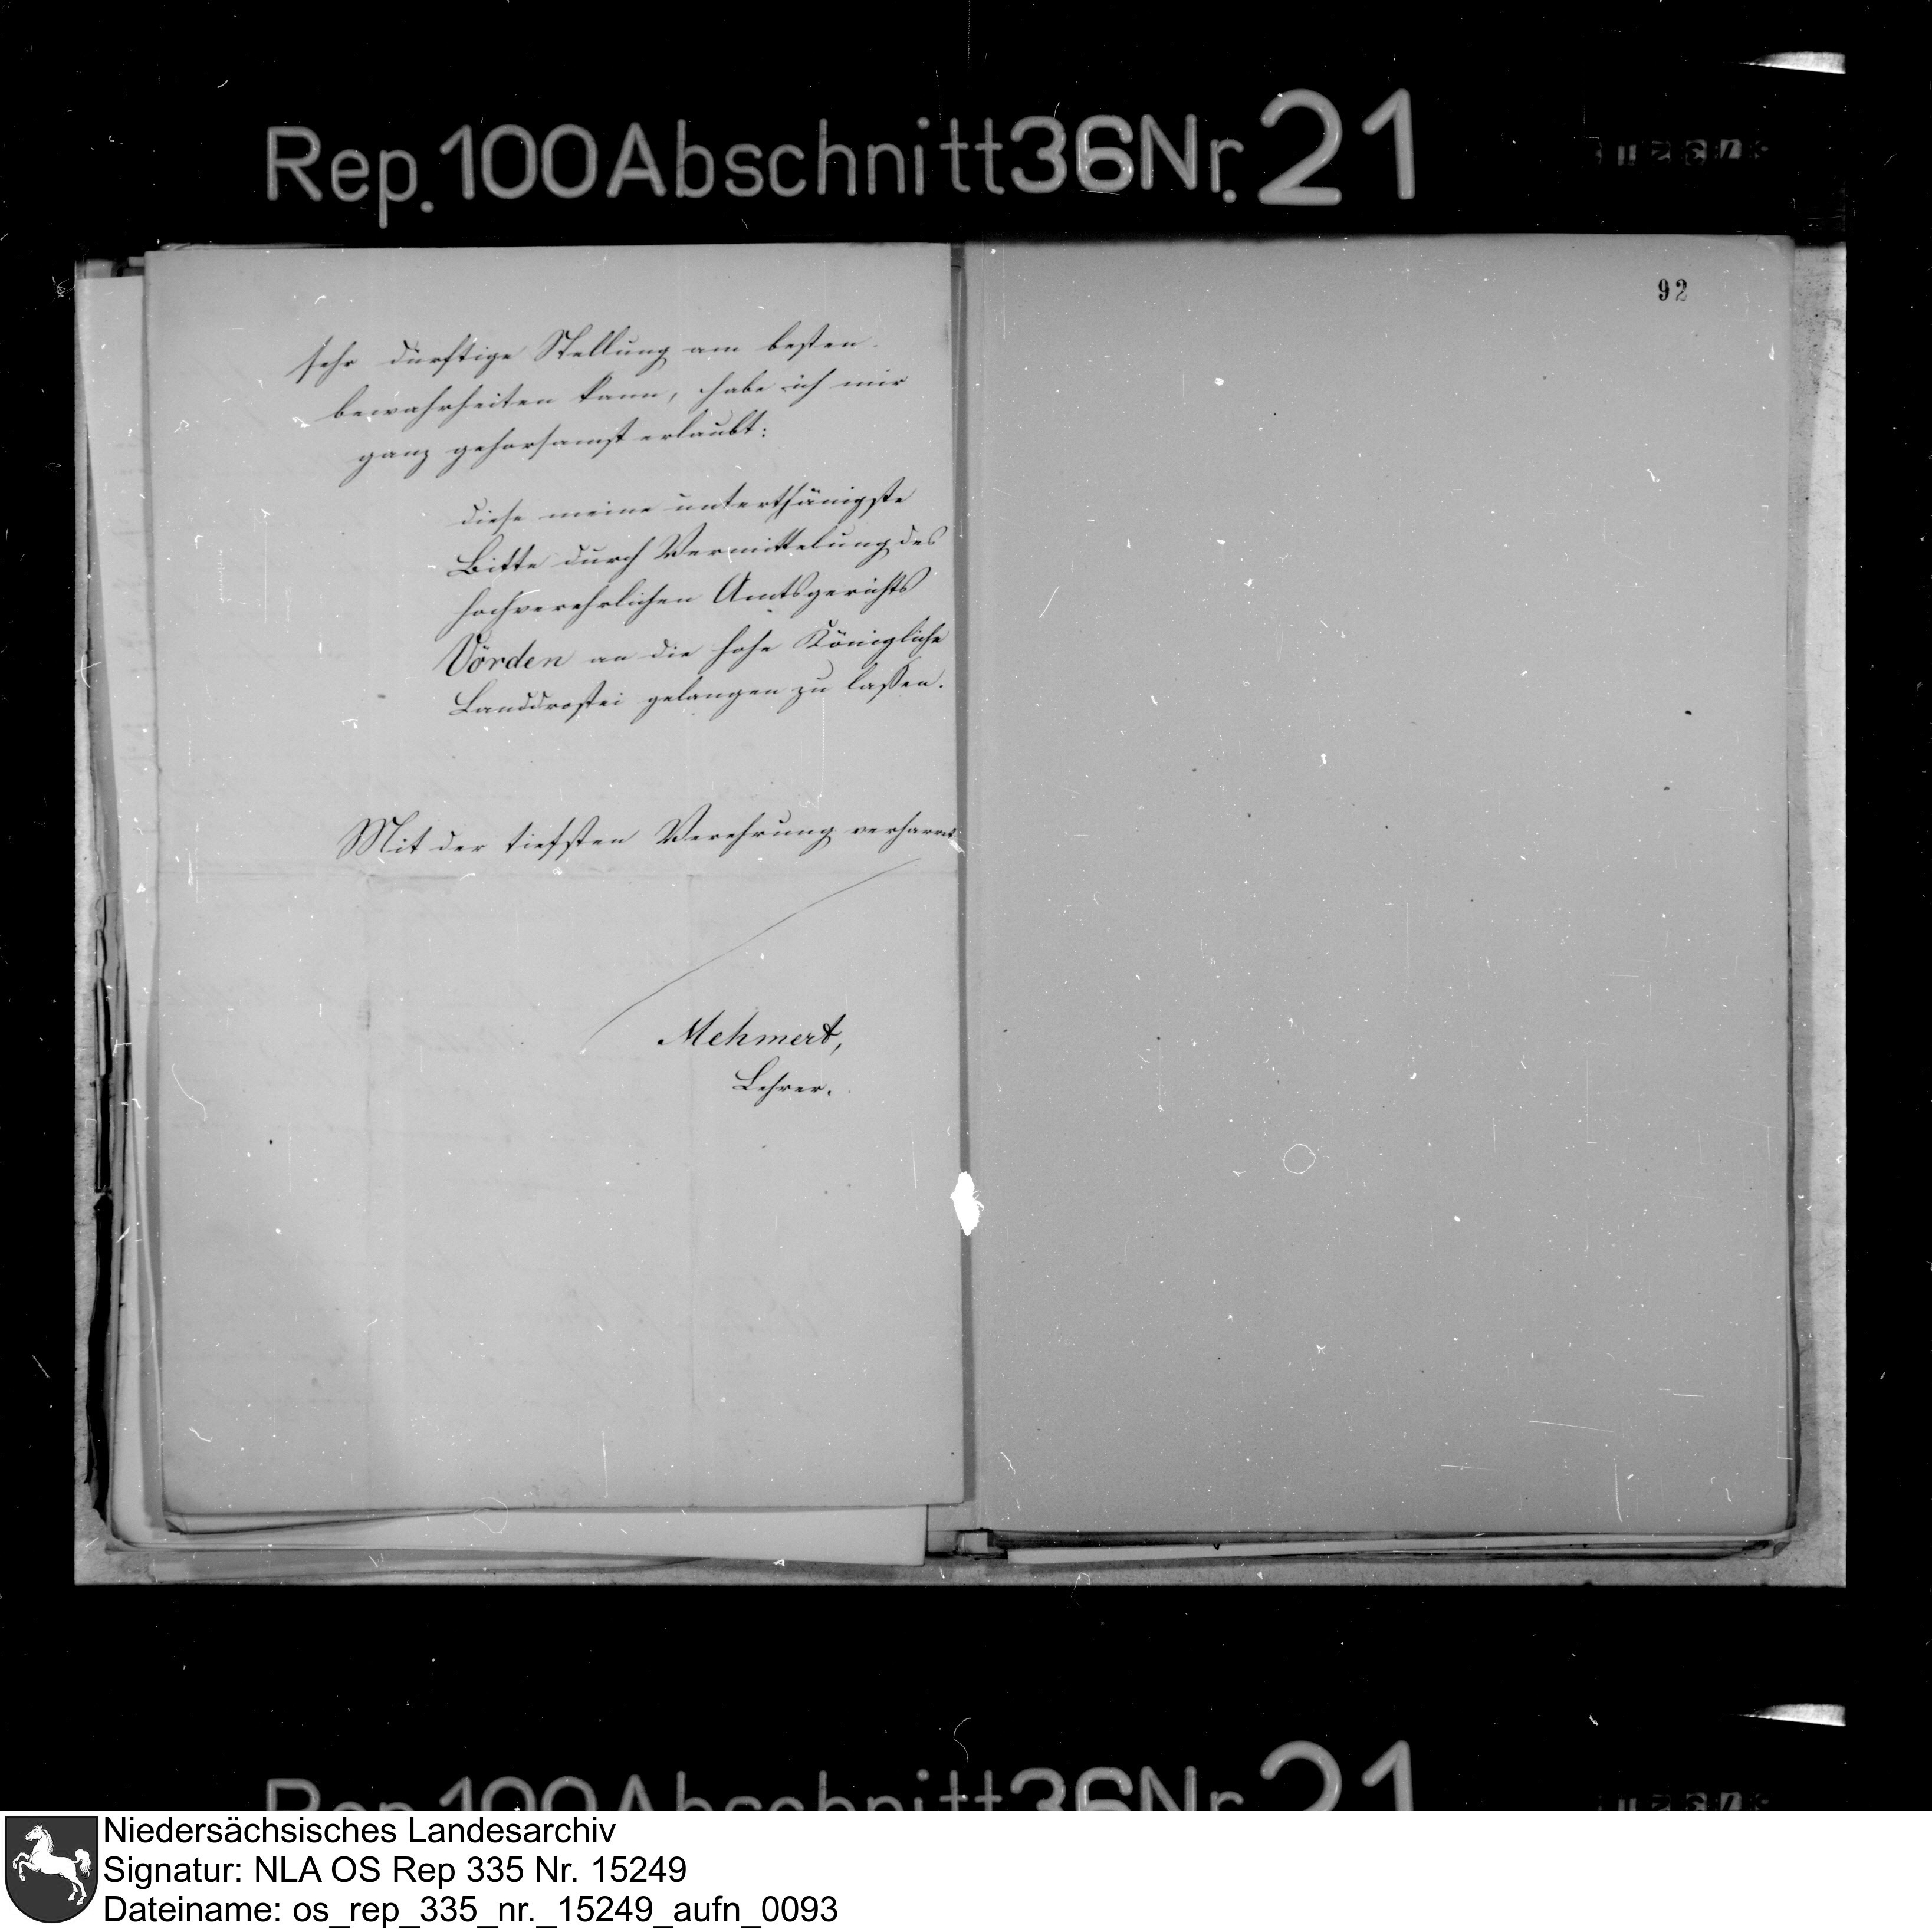 Rep. 100 Abschnitt 36 Nr. 21
92
sehr dürftige Stellung am besten
bewahrheiten kann, habe ich mir
ganz gehorsamst erlaubt:
diese meine unterthänigste
Bitte durch Vermittelung des
hochverehrlichen Amtsgerichts
Vörden an die hohe Königliche
Landdrostei gelangen zu lassen.
Mit der tiefsten Verehrung verharrt
Mehmert,
Lehrer.
Rep. 100 Abschnitt 36 Nr. 21
Niedersächsisches Landesarchiv
Signatur: NLA OS Rep 335 Nr. 15249
Dateiname: os_rep_335_nr._15249_aufn_0093